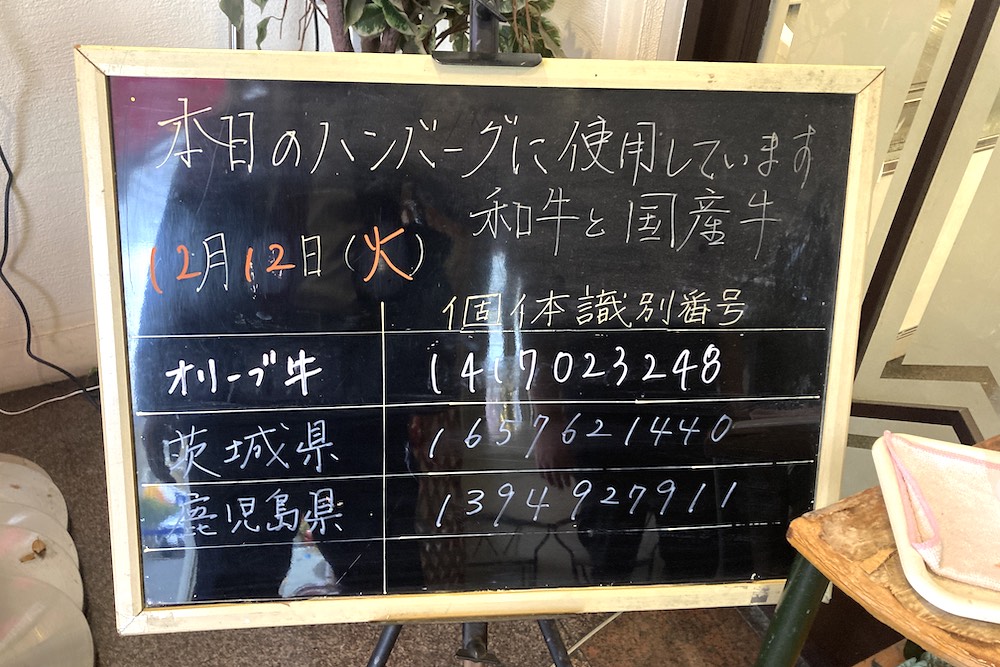 本日のハンバーグに使用しています
和牛と国産牛
12月12日(火)
個体識別番号
オリーブ牛 1417023248
茨城県 1657621440
鹿児島県 1394927911